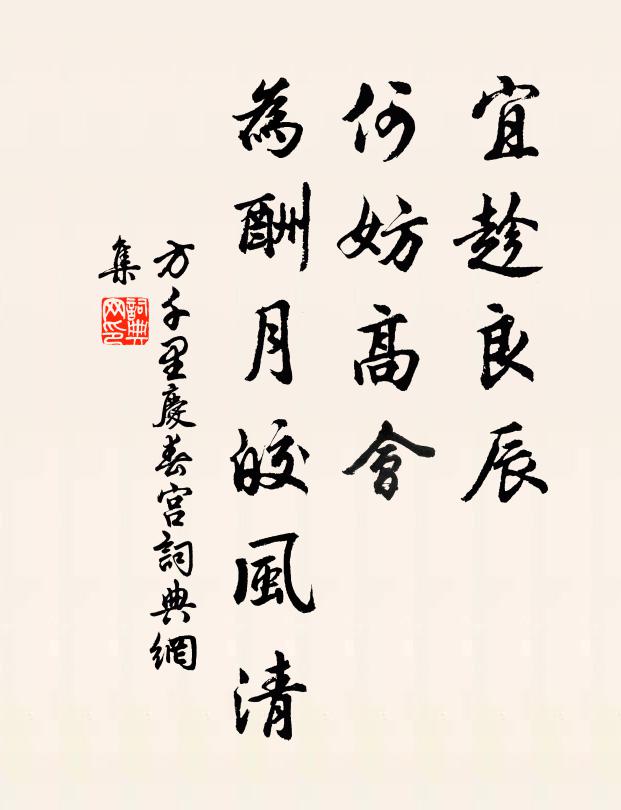 宜趁良辰
何妨高會
為酬月皎風清
方千里慶春宮詞典網
集
詞典
网印